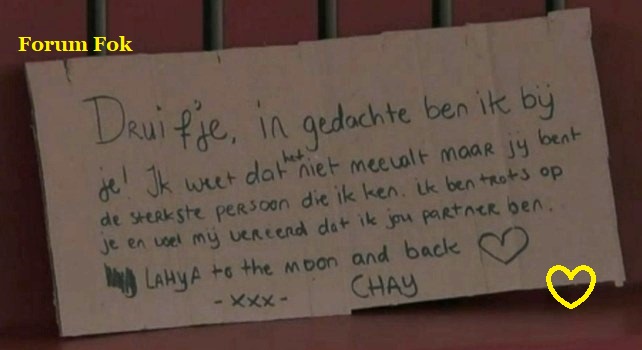 Forum Fok
Druifje, in gedachte ben ik bij
je! Ik weet dat het niet meevalt maar jy bent
de sterkste persoon die ik ken. ik ben trots op
je en voel mij vereerd dat ik jou partner ben.
LAHYA to the moon and back
-xxx- CHAY